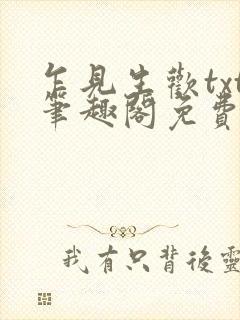 乍見生歡txt
筆趣閣免費
我有只背後靈